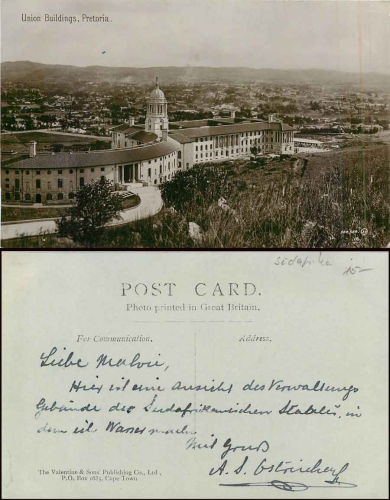 Union Buildings, Pretoria.
Südafrika 15–
POST CARD.
Photo printed in Great Britain.
For Communication. Address.
Liebe Malvie,
Hier ist eine Ansicht des Verwaltungs
Gebäude des Südafrikanischen Staates, in
dem ist
Mit Gruß
A. S.
The Valentine & Sons' Publishing Co., Ltd.,
P.O. Box 1685, Cape Town